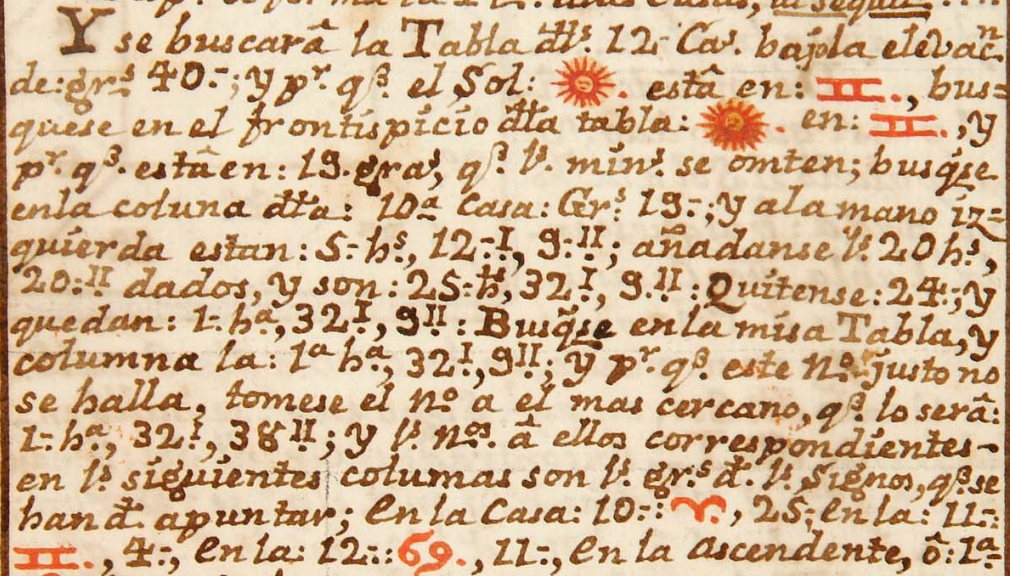 Y se buscarâ la Tabla dħs. 12- Cas. bajola elevac.n
de: grs. 40-; y pr. qe. el Sol: ☉. estâ en: ♊., bus=
quese en el frontispicio dħa tabla: ☉. en: ♊., y
pr. qe. estâ en: 19. gras, qe. ls. mins. se omten; busqse
enla coluna dħa: 10a casa: Grs. 19-; y ala mano iz=
quierda estan: 5-hs, 12-I, 9-II; añadanse ls. 20 hs,
20:II dados, y son: 25-hs, 32I, 9.II: Quitense: 24-; y
quedan: 1-ha, 32I, 9II: Busqse en la misa Tabla, y
columna la: 1a ha, 32I, 9II; y pr. qe. este no. justo no
se halla, tomese el no. a el mas cercano, qe. lo serâ:
1-ha, 32I, 38II; y ls. nos. â ellos correspondientes-
en ls. siguientes columas son ls. grs. d. ls. Signos, qe. se
han d. apuntar; en la Casa: 10-: ♈., 25-, en la: 11-:
♊., 4-, en la: 12-: ♋., 11-, en la ascendente, ô: 1a-